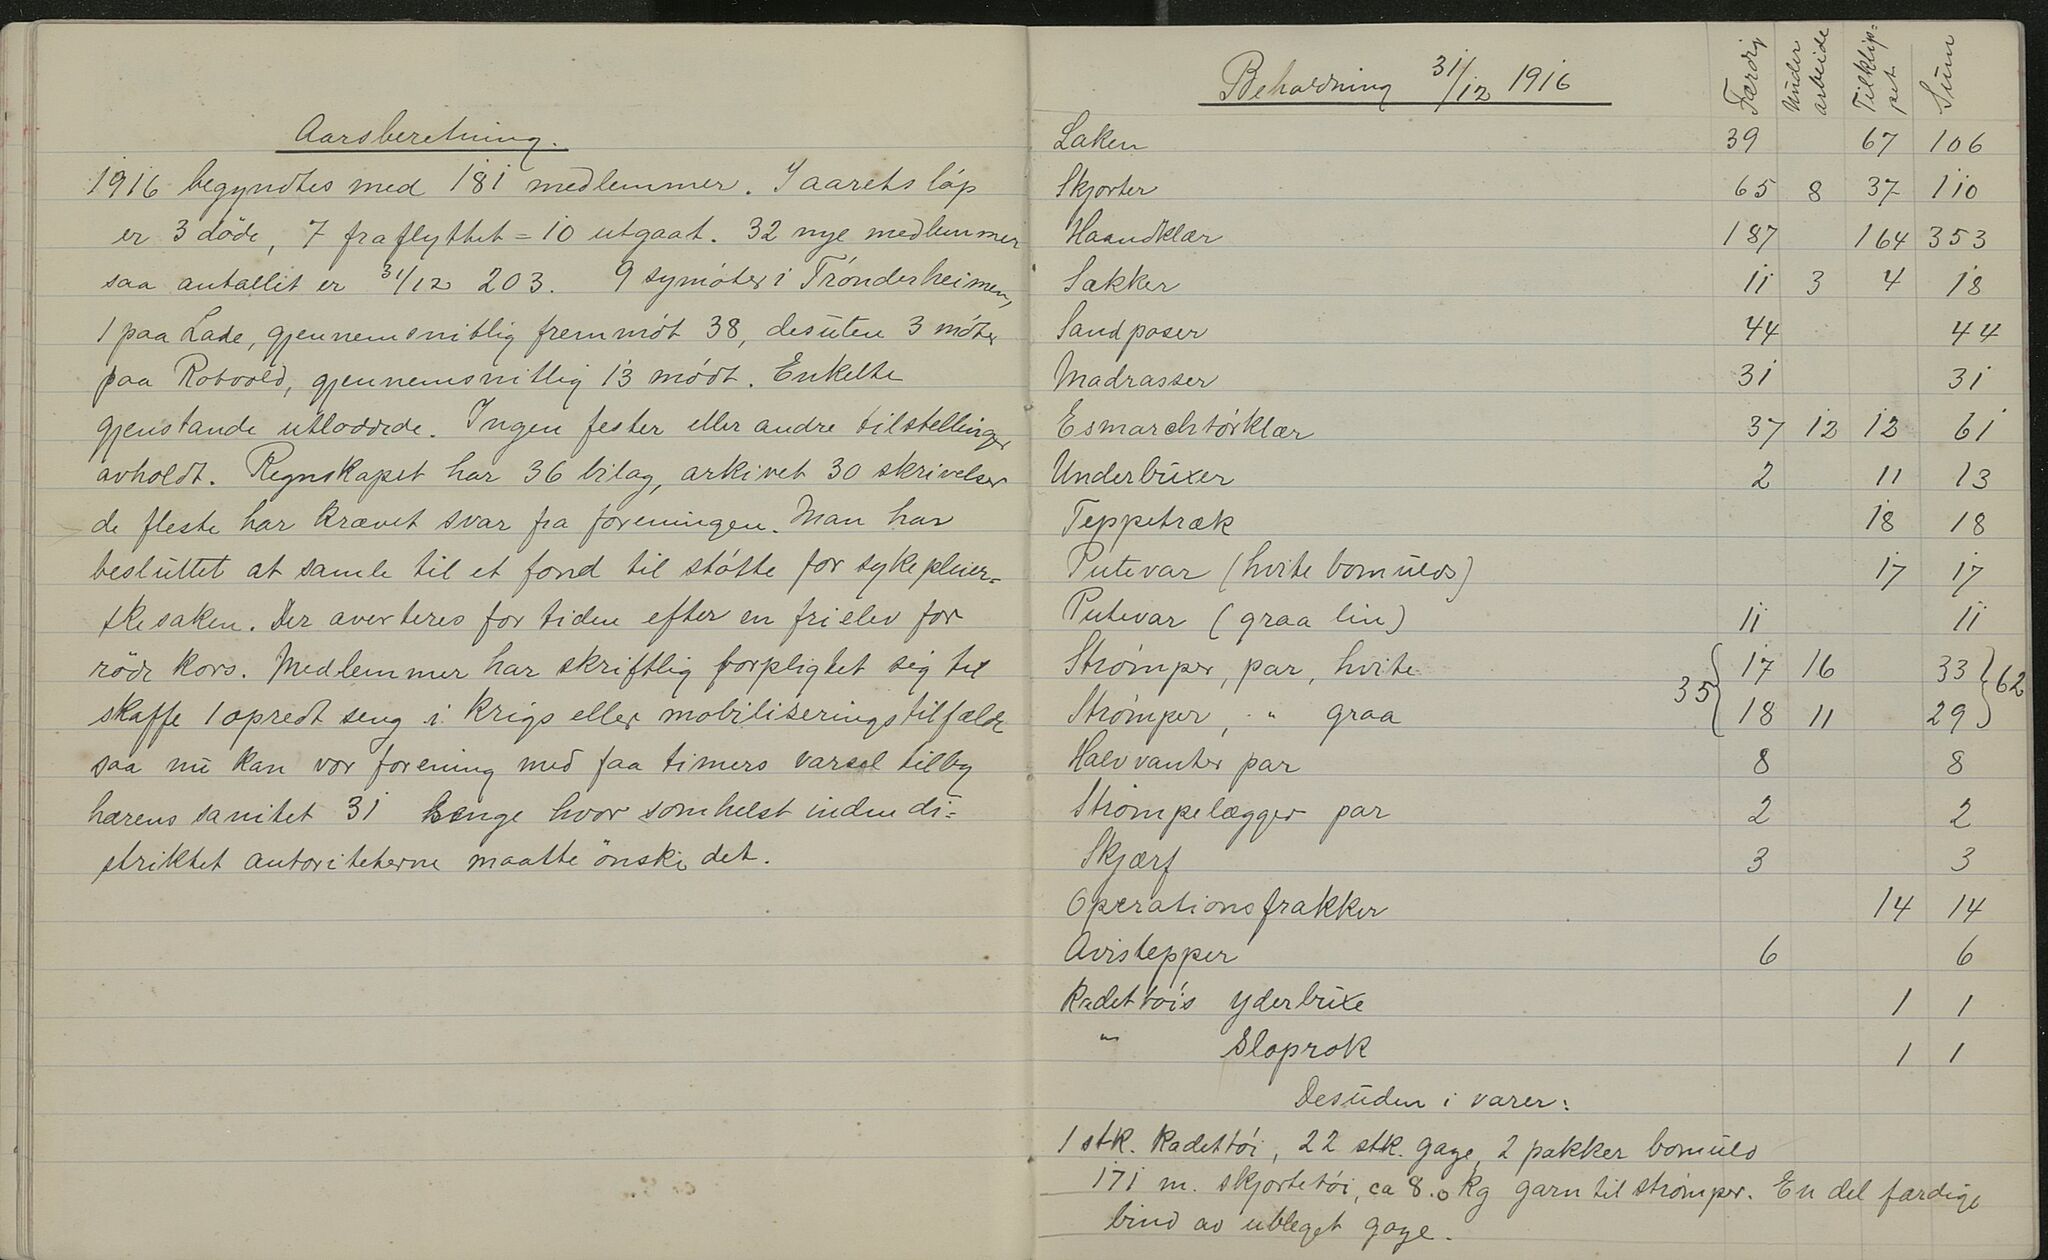 Aarsberetning.
1916 begyndtes med 181 medlemmer. I aarets løp
er 3 döde, 7 fraflyttet = 10 utgaat. 32 nye medlemmer
saa antallet er 31/12 203. 9 symøter i Trønderheimen,
1 paa Lade, gjennemsnitlig fremmøt 38, desuten 3 møter
paa Rotvold, gjennemsnitlig 13 mødt. Enkelte
gjenstande utloddede. Ingen fester eller andre tilstellinger
avholdt. Regnskapet har 36 bilag, arkivet 30 skrivelser
de fleste har krævet svar fra foreningen. Man har
besluttet at samle til et fond til støtte for sykepleier-
skesaken. Der averteres for tiden efter en frielev for
röde kors. Medlemmer har skriftlig forpligtet sig til
skaffe 1 opredt seng i krigs eller mobiliseringstilfælde
saa nu kan vor forening med faa timers varsel tilby
hærens sanitet 31 senge hvor somhelst inden di-
striktet autoriteterne maatte önske det.
Beholdning 31/12 1916
Færdig Under arbeide Tilklippet Sum
Laken 39 67 106
Skjorter 65 8 37 110
Haandklær 187 164 353
Sækker 11 3 4 18
Sandposer 44 44
Madrasser 31 31
Esmarchtørklær 37 12 12 61
Underbuxer 2 11 13
Teppetræk 18 18
Putevar (hvite bomulds) 17 17
Putevar (graa lin) 11 11
Strømper, par, hvite 35 { 17 16 33 } 62
Strømper, " graa 18 11 29
Halvvanter par 8 8
Strømpelægger par 2 2
Skjærf 3 3
Operationsfrakker 14 14
Avistepper 6 6
Kadettøis yderbuxe 1 1
" Sloprok 1 1
Desuden i varer:
1 stk. Kadettøi, 22 stk. gaze, 2 pakker bomuld
171 m. skjortetøi, ca 8.0 kg garn til strømper. En del færdige
bind av ubleget gaze.